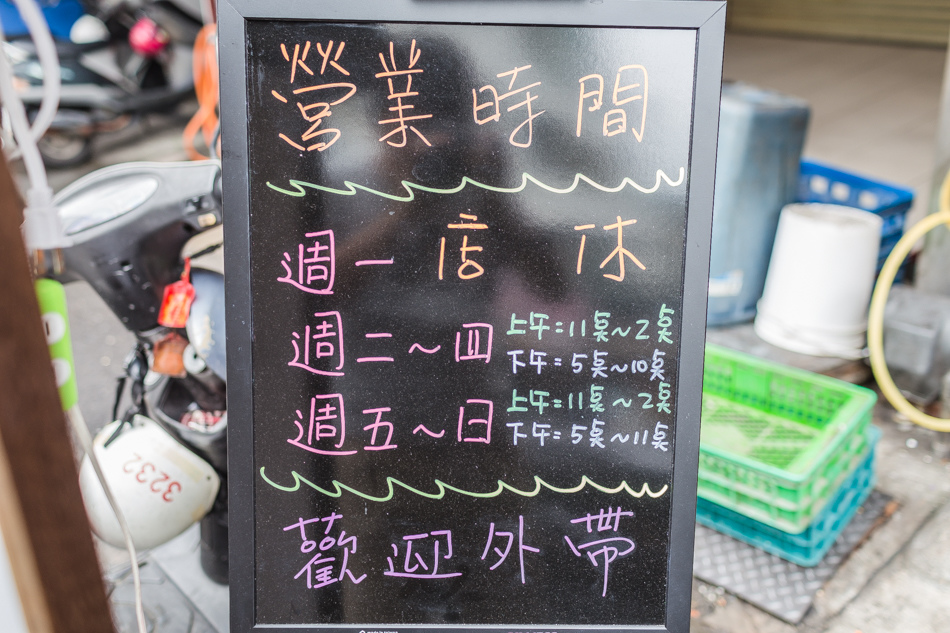 營業時間
週一 店休
週二～四 上午=11奌～2奌
下午=5奌～10奌
週五～日 上午=11奌～2奌
下午=5奌～11奌
歡迎外帶
3232